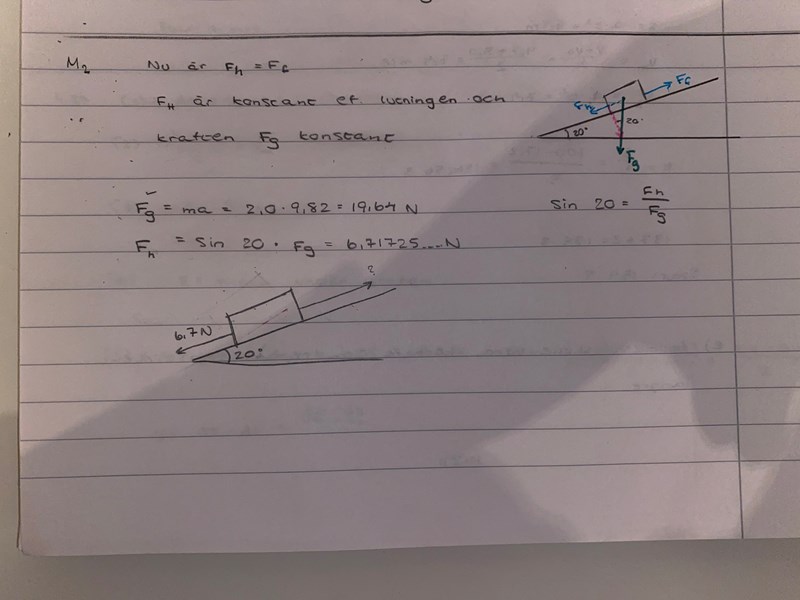 M2 Nu är Fh = Ff
FH är konstant ef lutningen och
kraften Fg konstant
Ff
Fh
20°
20°
Fg
Fg = ma = 2,0 · 9,82 = 19,64 N
sin 20 = Fh / Fg
Fh = sin 20 · Fg = 6,71725...N
?
6,7N
20°